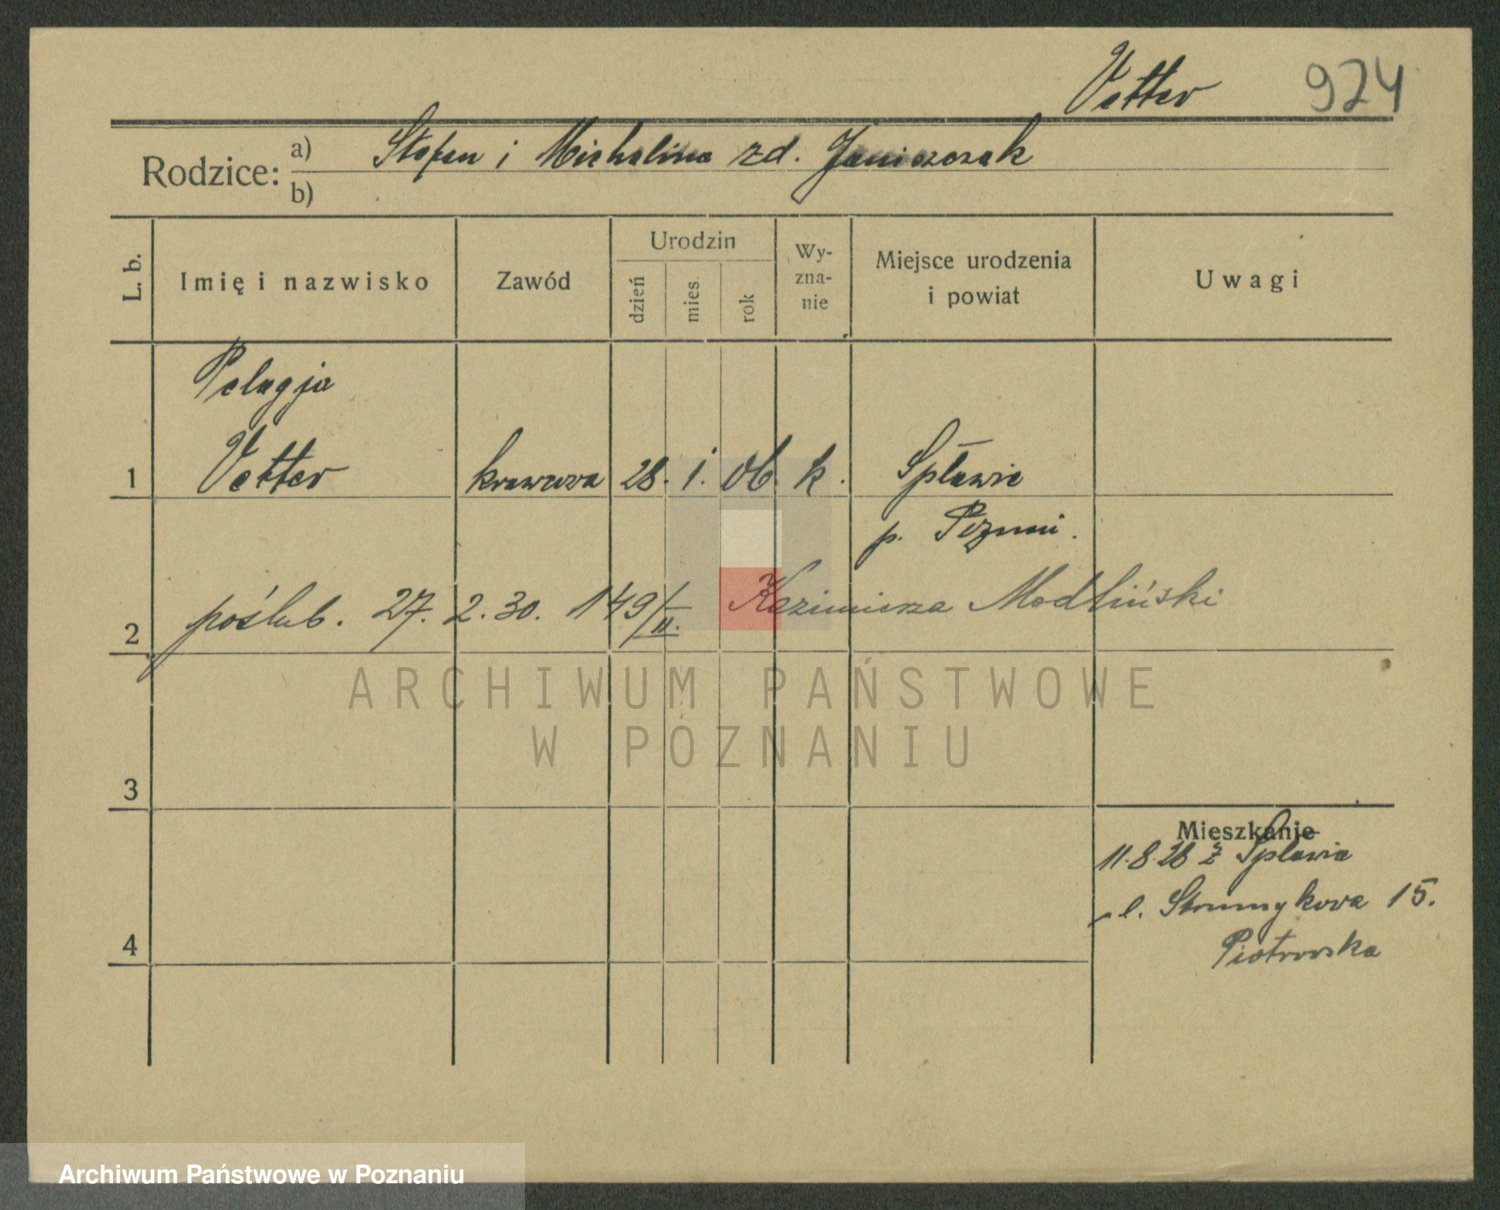 Vetter 924
Rodzice: a) Stefan i Michalina zd. Janiszczak
b)
L. b. Imię i nazwisko Zawód Urodzin dzień mies. rok Wy-zna-nie Miejsce urodzenia i powiat Uwagi
Pelagja
1 Vetter krawcowa 28. 1. 06. k. Spławie
p. Pozn
2 poślub. 27. 2. 30. 149/II. Kazimierza Modliński
ARCHIWUM PAŃSTWOWE
W POZNANIU
3
Mieszkanie
11.8 28 z Spławia
ul. Strumykowa 15.
4 Piotrowska
Archiwum Państwowe w Poznaniu